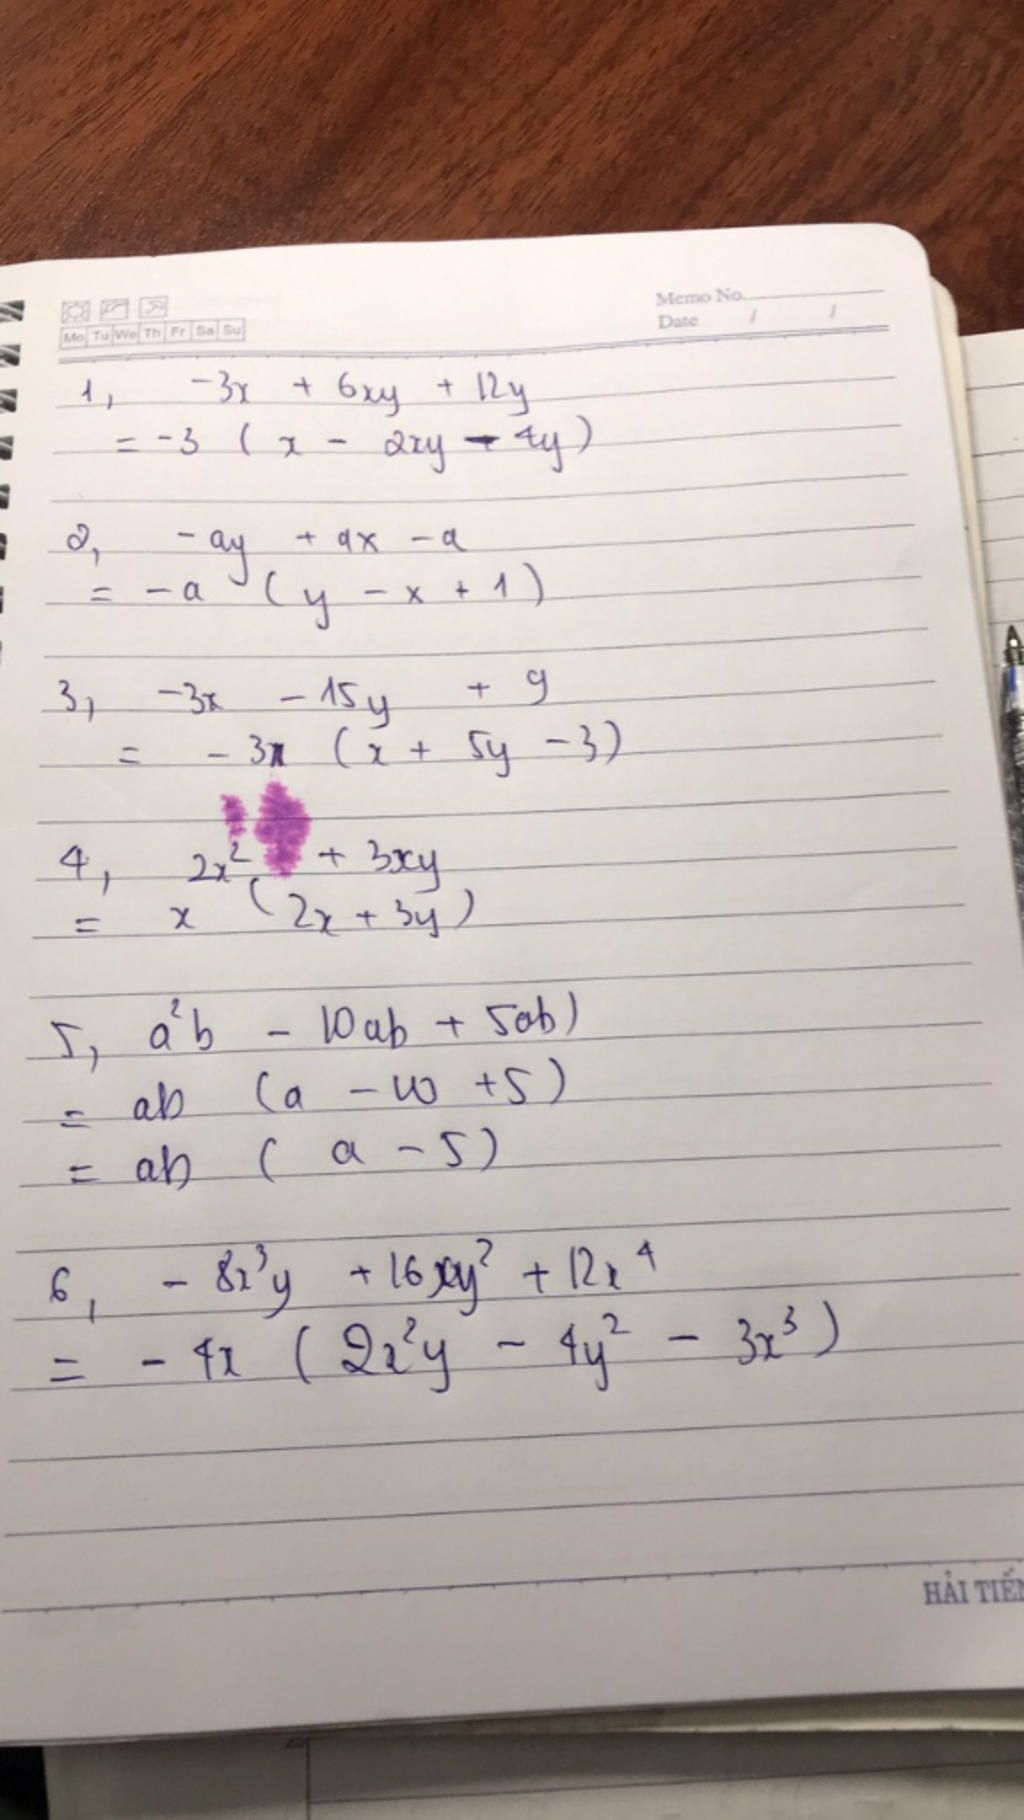 Memo No.
Date / /
Mo Tu We Th Fr Sa Su
1, -3x + 6xy + 12y
= -3 ( x - 2xy - 4y )
2, - ay + ax - a
= - a ( y - x + 1 )
3, -3x - 15y + 9
= - 3x ( x + 5y - 3 )
4, 2x² + 3xy
= x ( 2x + 3y )
5, a²b - 10ab + 5ab )
= ab ( a - 10 + 5 )
= ab ( a - 5 )
6, - 8x³y + 16xy² + 12x⁴
= - 4x ( 2x²y - 4y² - 3x³ )
HẢI TIẾN